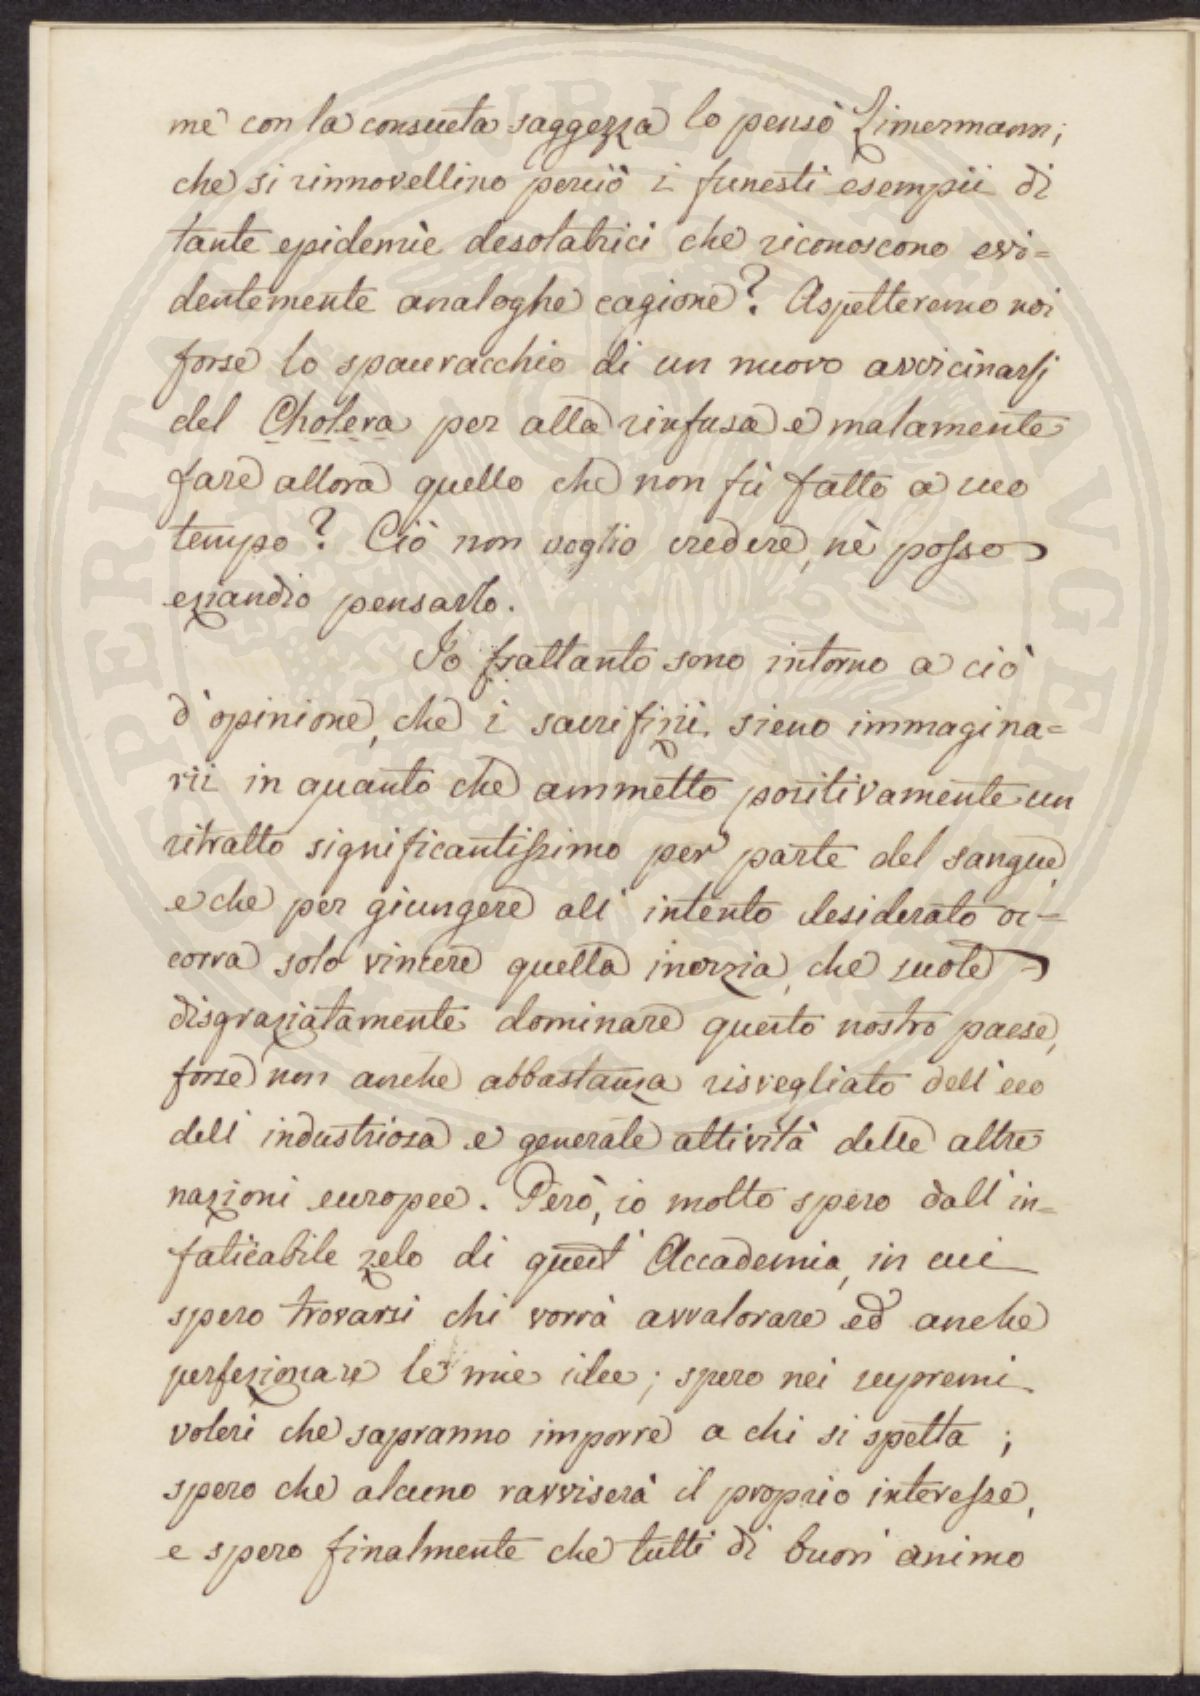 me con la consueta saggezza lo pensò Zimermann;
che si rinnovellino perciò i funesti esempii di
tante epidemie desolatrici che riconoscono evi=
dentemente analoghe cagione? Aspetteremo noi
forse lo spauracchio di un nuovo avvicinarsi
del Cholera per alla rinfusa e malamente
fare allora quello che non fù fatto a suo
tempo? Ciò non voglio credere, nè posso
eziandio pensarlo.
Io frattanto sono intorno a ciò
d'opinione, che i sacrifizii sieno immagina=
rii in quanto che ammetto positivamente un
ritratto significantissimo per parte del sangue,
e che per giungere all' intento desiderato oc=
corra solo vincere quella inerzia, che suole
disgraziatamente dominare questo nostro paese,
forse non anche abbastanza risvegliato dell'eco
dell' industriosa e generale attività delle altre
nazioni europee. Però, io molto spero dall' in=
faticabile zelo di quest' Accademia, in cui
spero trovarsi chi vorrà avvalorare ed anche
perfezionare le mie idee; spero nei supremi
voleri che sapranno imporre a chi si spetta;
spero che alcuno ravviserà il proprio interesse,
e spero finalmente che tutti di buon animo